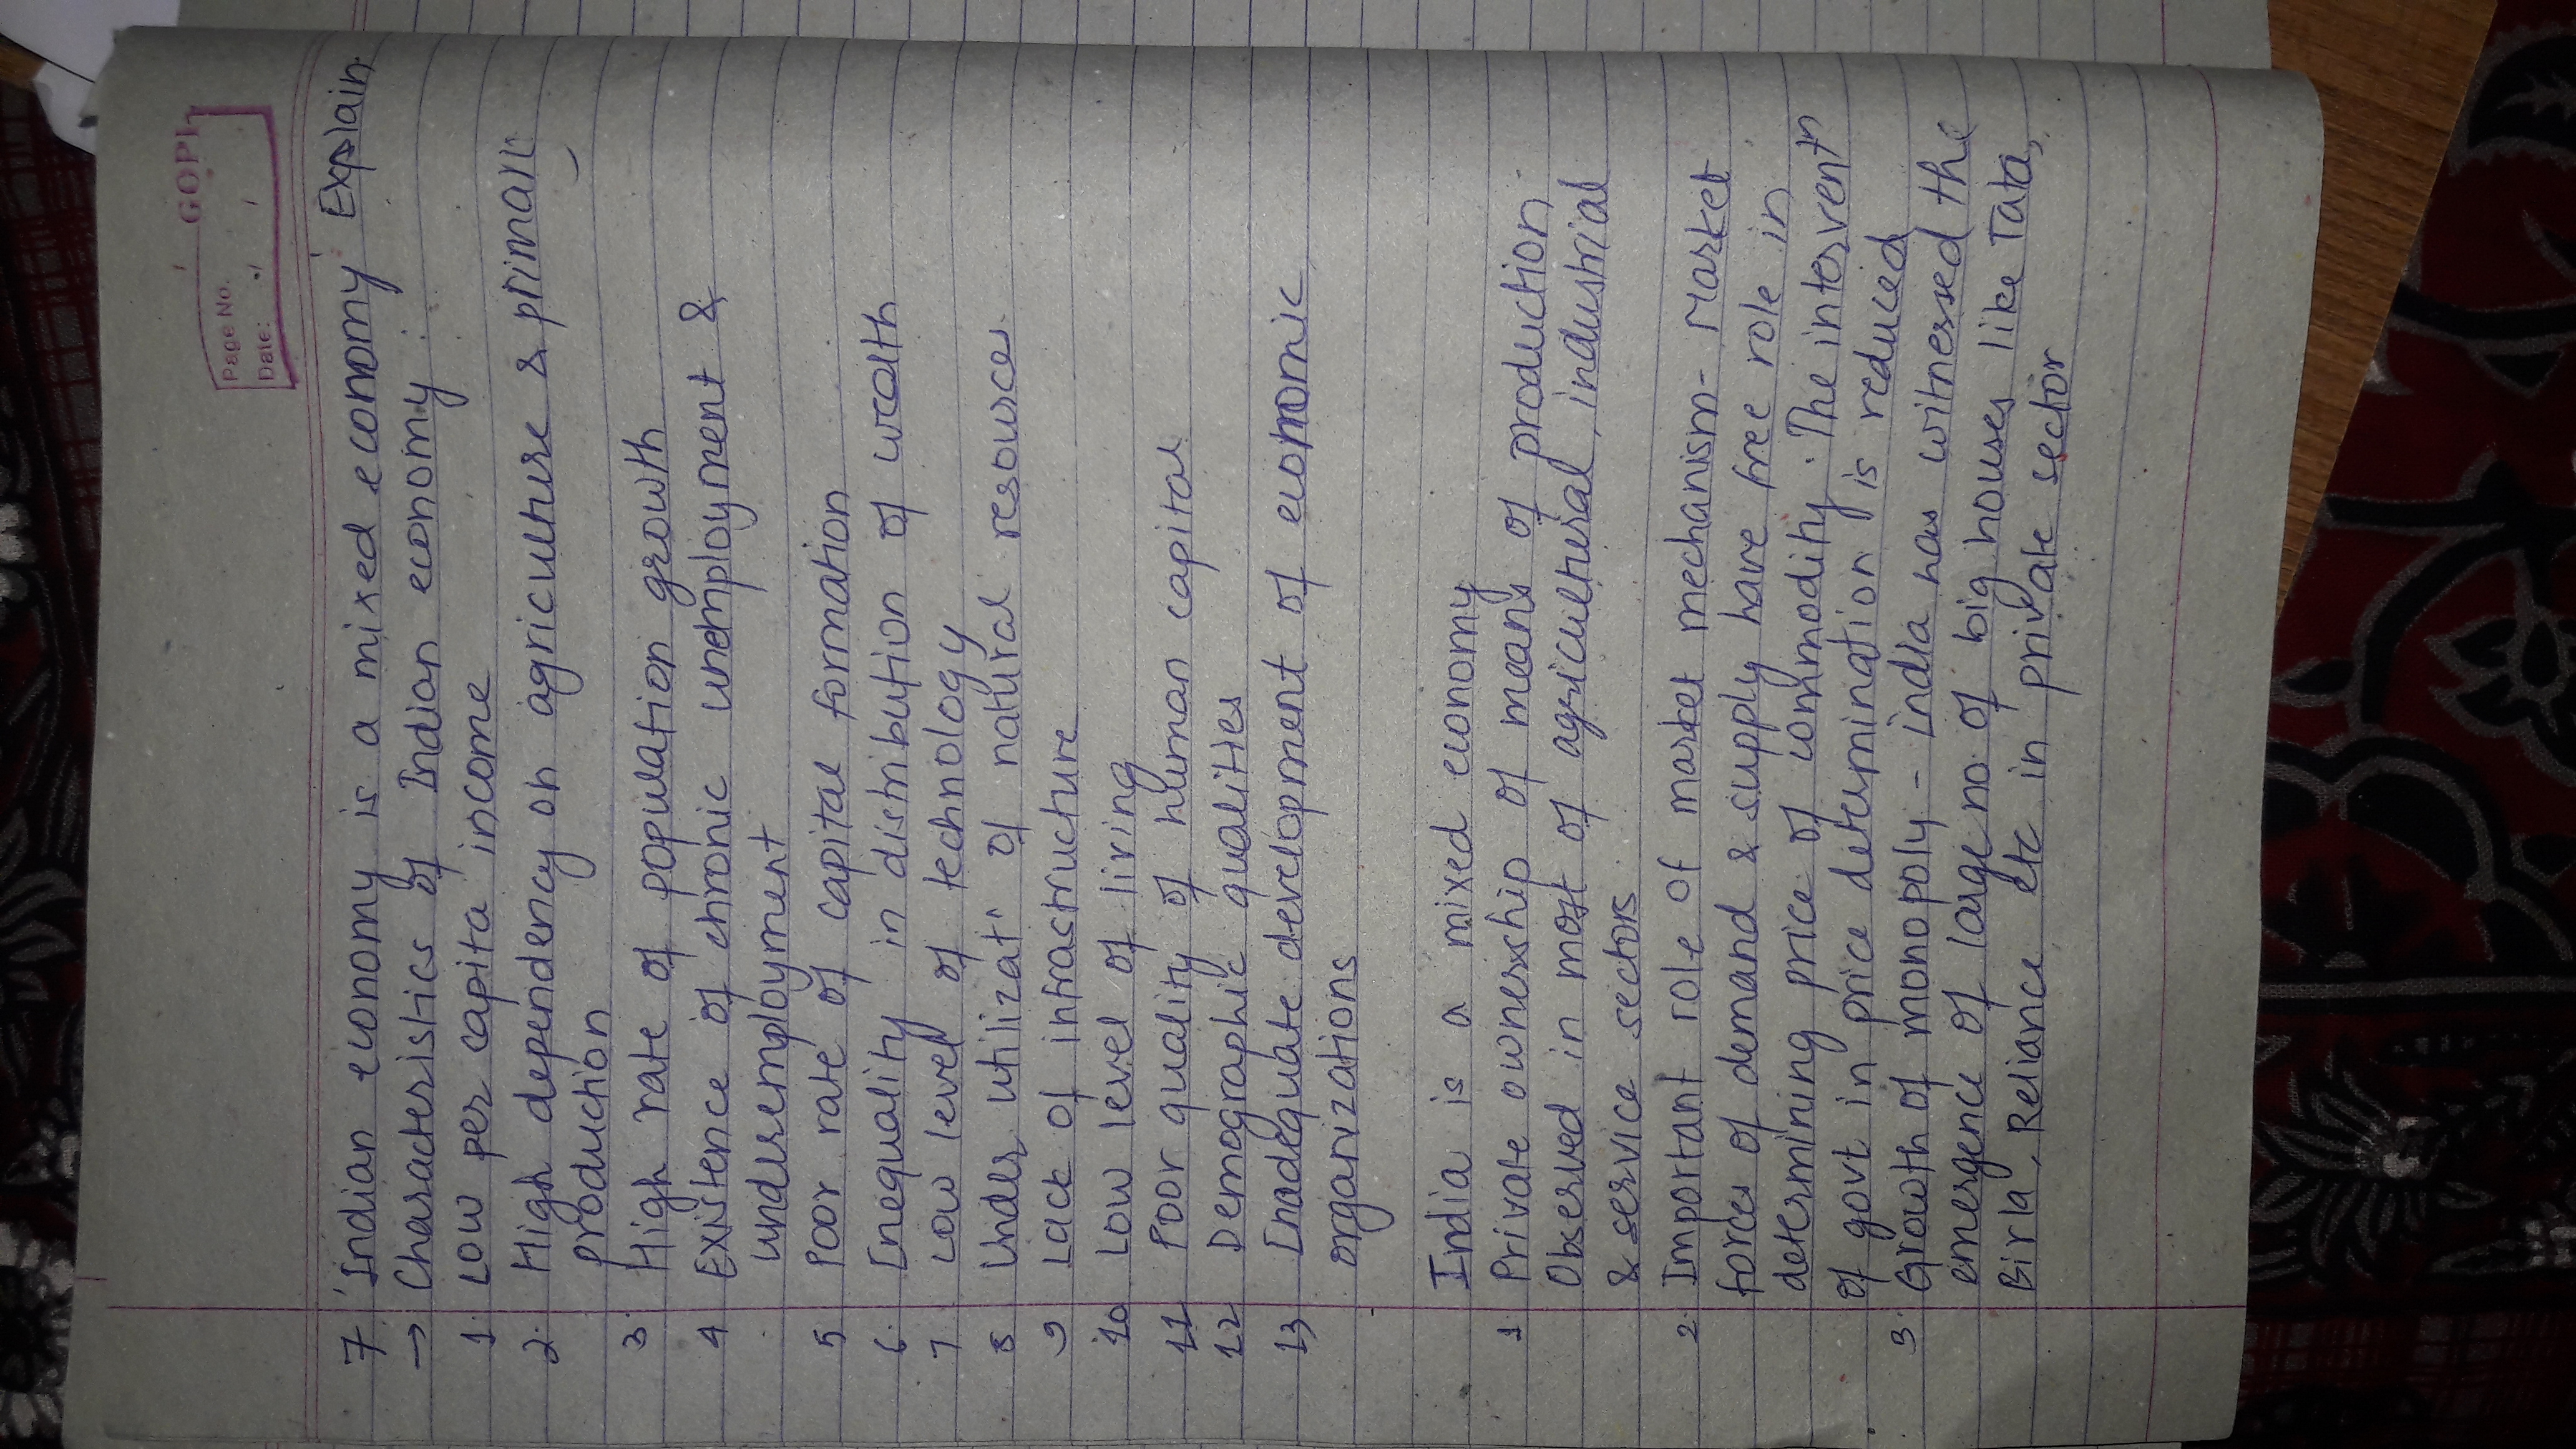 GOPI
Page No.
Date: / /
7. 'Indian economy is a mixed economy' Explain.
→ Characteristics of Indian economy :
1. Low per capita income
2. High dependency on agriculture & primary
production
3. High rate of population growth
4 Existence of chronic unemployment &
underemployment
5 Poor rate of capital formation
6. Inequality in distribution of wealth
7 Low level of technology
8 Under utilizatⁿ of natural resources.
9 Lack of infrastructure
10 Low level of living
11 Poor quality of human capital
12 Demographic qualities
13 Inadequate development of economic
organizations
India is a mixed economy
1. Private ownership of means of production
Observed in most of agricultural, industrial
& service sectors
2. Important role of market mechanism - Market
forces of demand & supply have free role in
determining price of commodity. The interventⁿ
of govt in price determination is reduced
3. Growth of monopoly - India has witnessed the
emergence of large no. of big houses like Tata,
Birla, Reliance etc in private sector